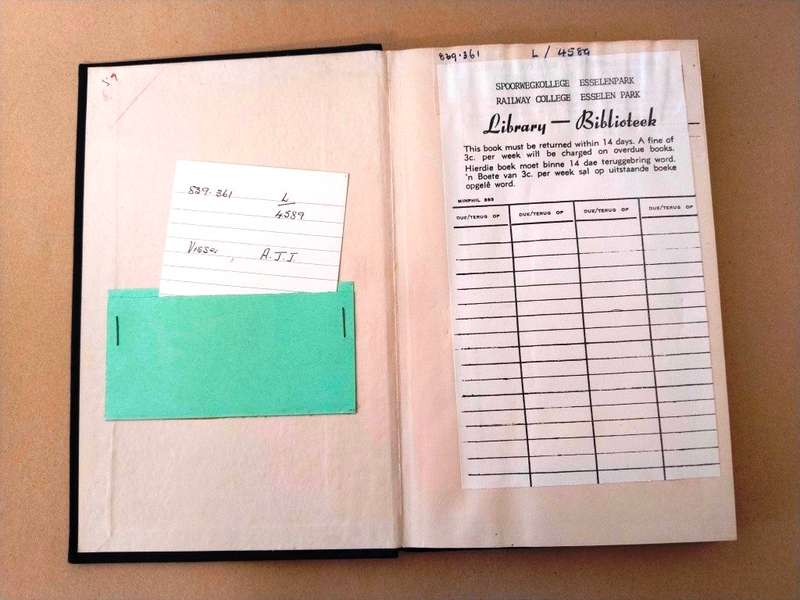 839.361
L
4589
Visser, A.J.J.
839.361 L/4589
SPOORWEGKOLLEGE ESSELENPARK
RAILWAY COLLEGE ESSELEN PARK
Library — Biblioteek
This book must be returned within 14 days. A fine of
3c. per week will be charged on overdue books.
Hierdie boek moet binne 14 dae teruggebring word.
'n Boete van 3c. per week sal op uitstaande boeke
opgelê word.
MINPHIL 393
DUE/TERUG OP DUE/TERUG OP DUE/TERUG OP DUE/TERUG OP